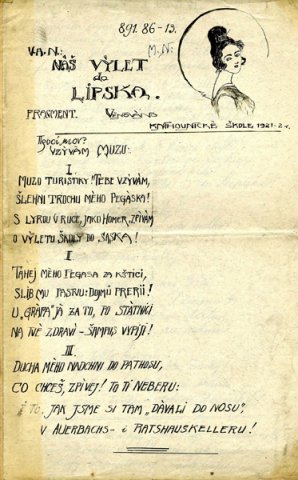 891.86-13.
V.A.N.:
M.N:
NÁŠ VÝLET
do
LÍPSKA.
FRAGMENT. VĚNOVÁNO
KNIHOVNICKÉ ŠKOLE 1921-2.
VZÝVÁM MUZU:
I.
MUZO TURISTIKY! TEBE VZÝVÁM,
ŠLEHNI TROCHU MÉHO PEGASKA!
S LYROU V RUCE, JAKO HOMÉR, ZPÍVÁM
O VÝLETU ŠKOLY DO „SASKA“!
II.
TAHEJ MÉHO PEGASA ZA KŠTICI,
SLIB MU PASTVU: DOJMŮ PRERII!
U „GRAPA“ JÁ ZA TO, PO STÁTNICI
NA TVÉ ZDRAVÍ - ŠAMPUS VYPIJI!
III.
DUCHA MÉHO NADCHNI DO PATHOSU,
CO CHCEŠ, ZPÍVEJ! TO TI NEBERU:
I TO, JAK JSME SI TAM „DÁVALI DO NOSU“,
V AUERBACHS- i RATSHAUSKELLERU!